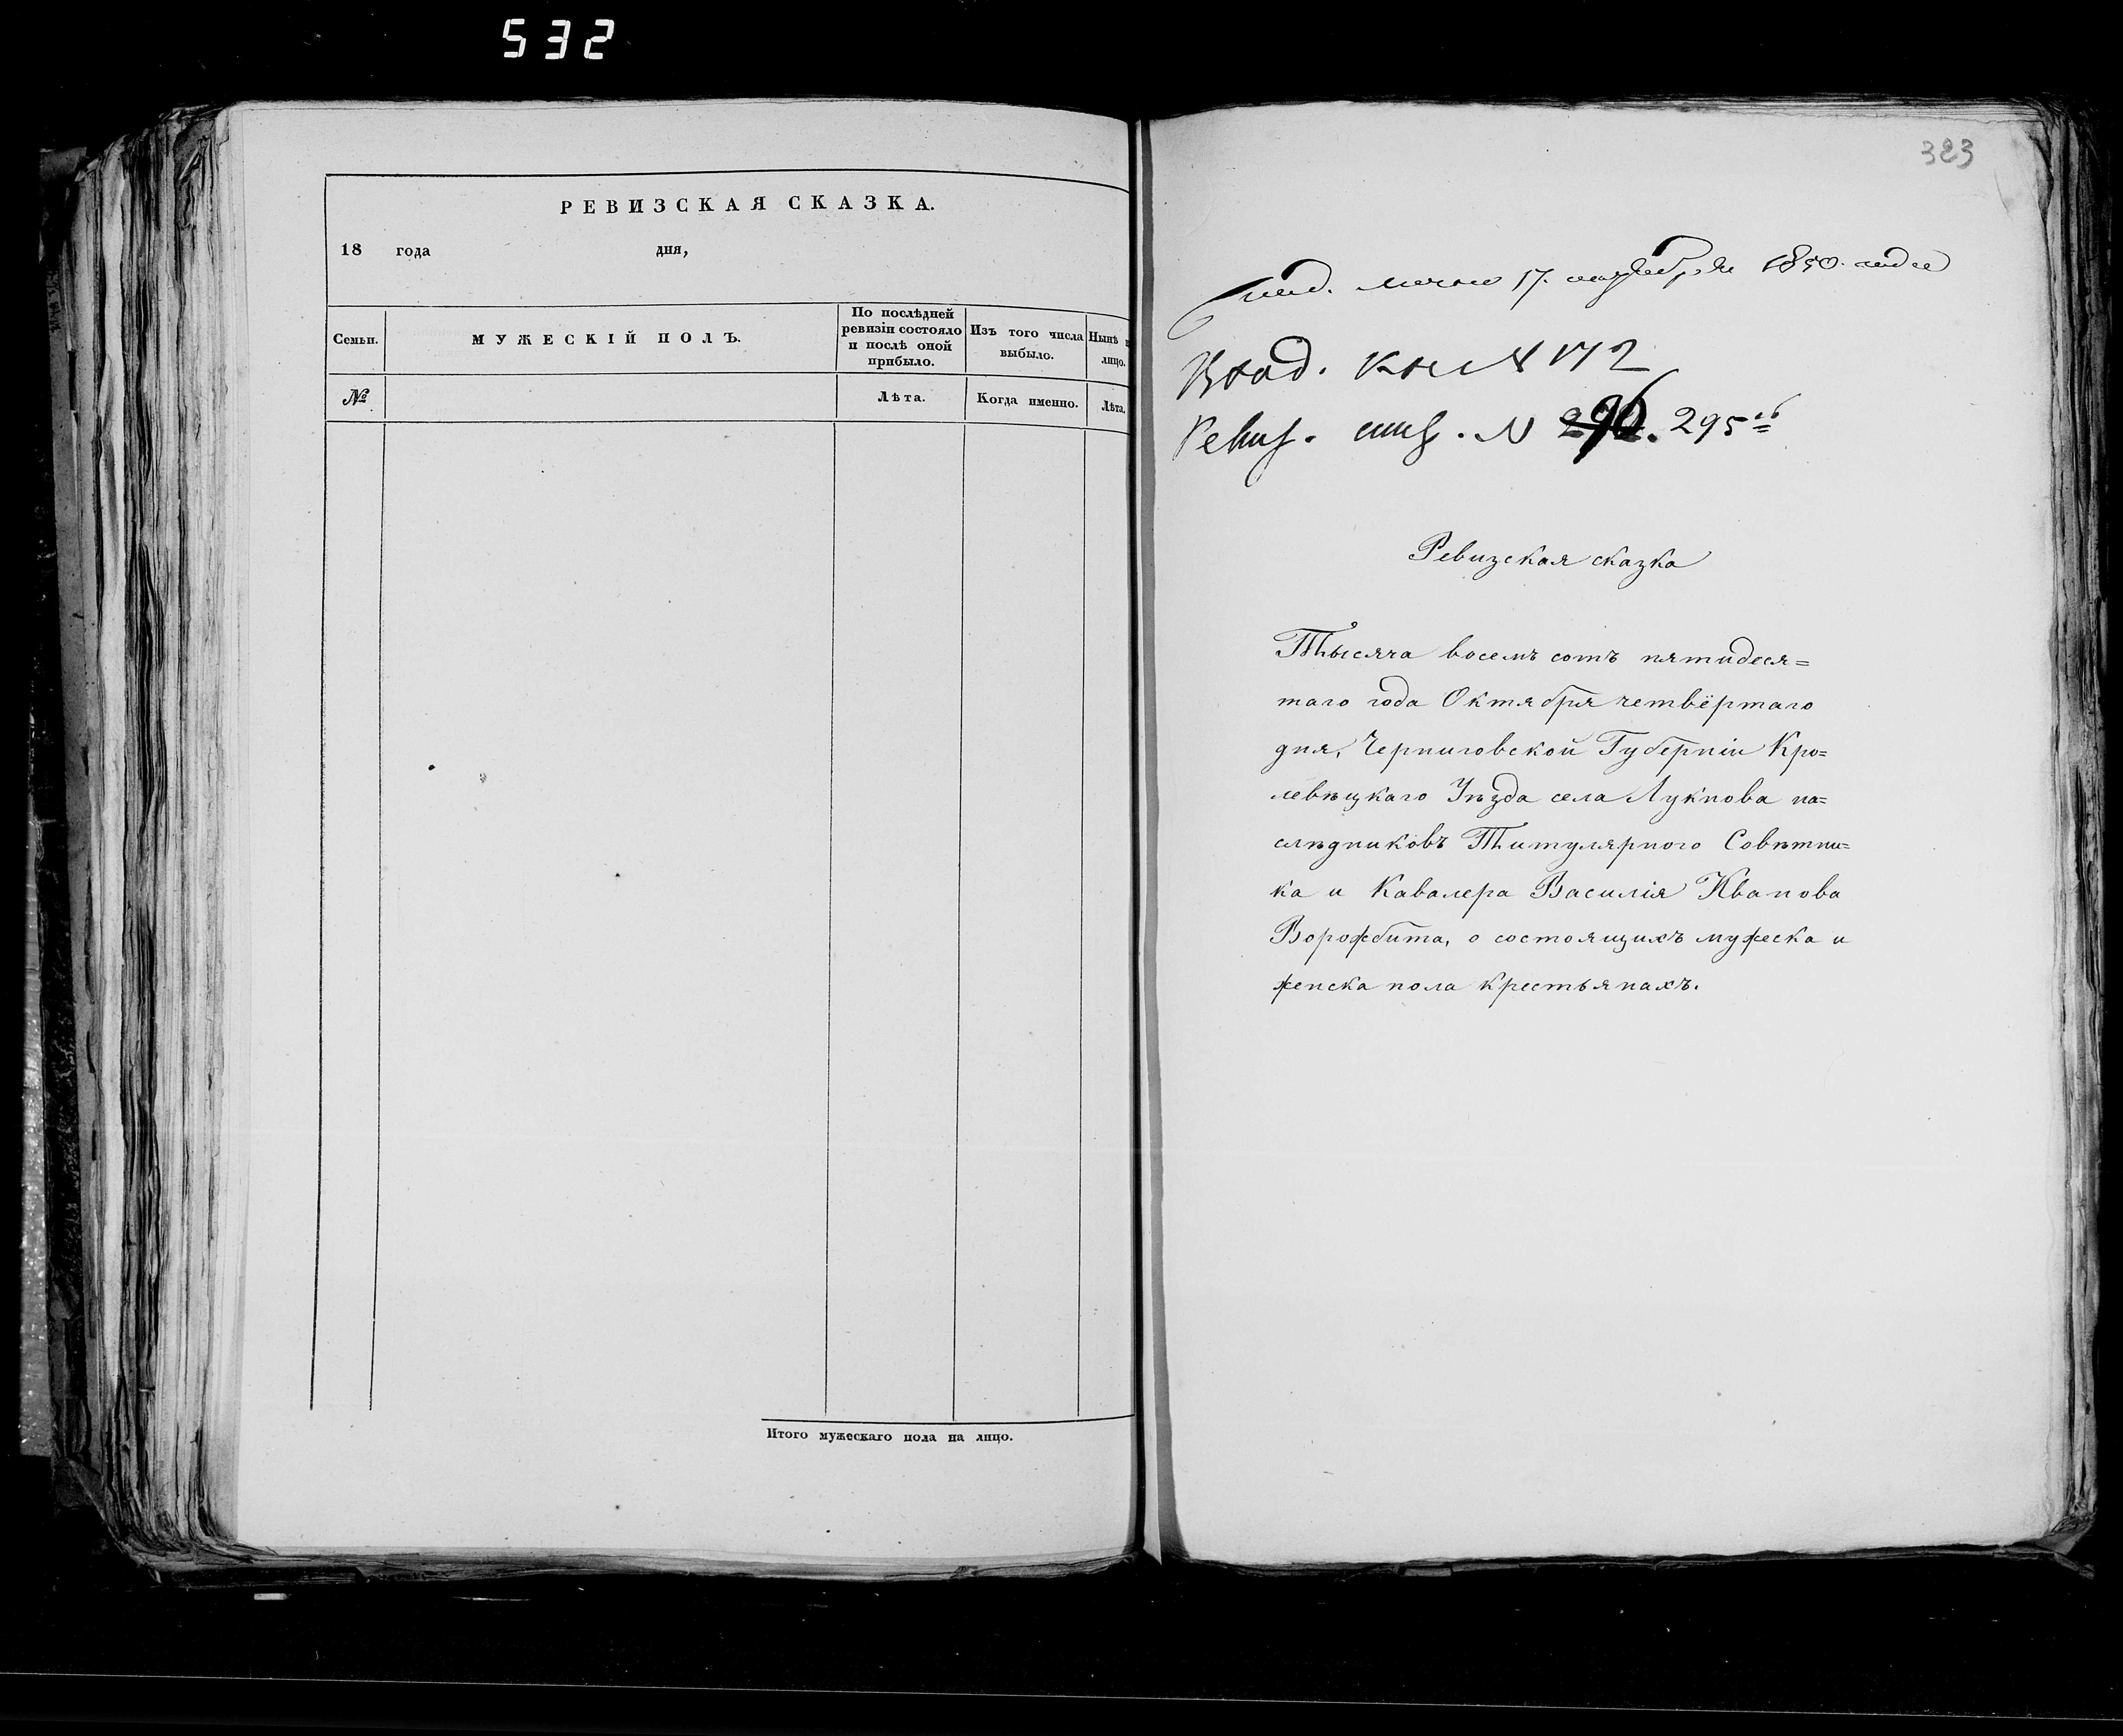 532
РЕВИЗСКАЯ СКАЗКА.
18 года дня,
Семьи.
МУЖЕСКІЙ ПОЛЪ.
По послѣдней
ревизіи состояло
и послѣ оной
прибыло.
Изъ того числа
выбыло.
Нынѣ
лицо.
№
Лѣта.
Когда именно.
Лѣта.
Итого мужескаго пола на лицо.
323
17. 1850. года
Вход. кн № 172
Ревиз. № 295
Ревизская сказка
Тысяча восемъ сотъ пятидеся=
таго года Октября четвёртаго
дня, Черниговской Губерніи Кро=
левѣцкаго Уѣзда села Лукнова на=
слѣдниковъ Титулярного Совѣтни=
ка и Кавалера Василія Иванова
Ворожбита, о состоящихъ мужеска и
женска пола крестьянахъ.